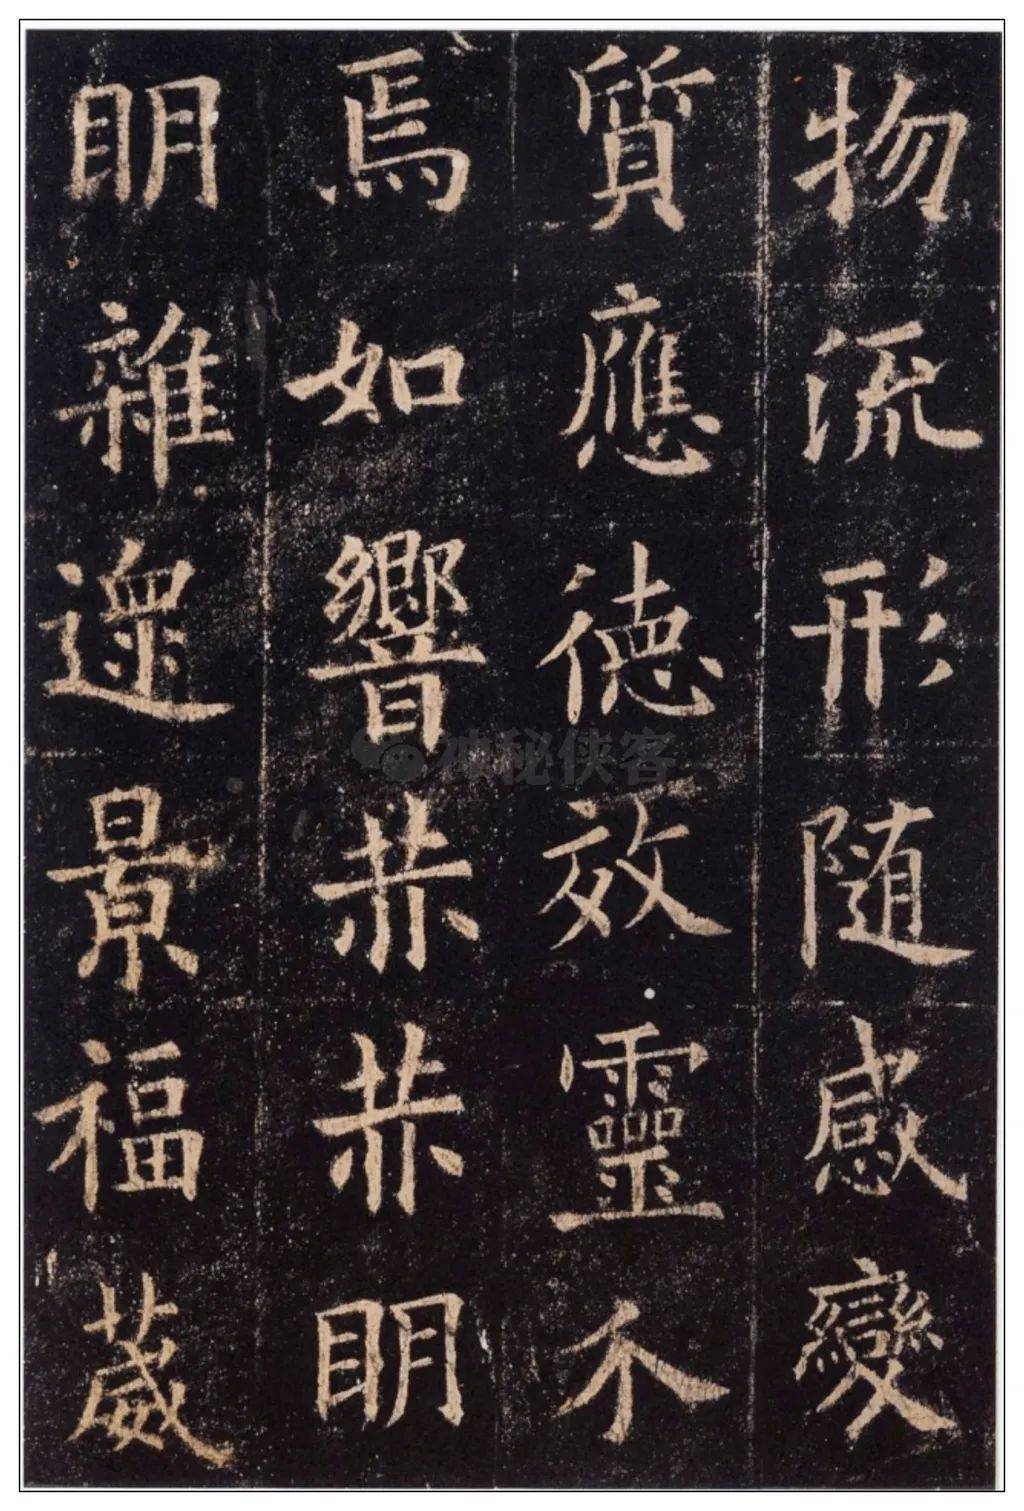 物流形随感變
質應德效靈介
焉如響赫赫明
明雜遝景福葳
神秘侠客